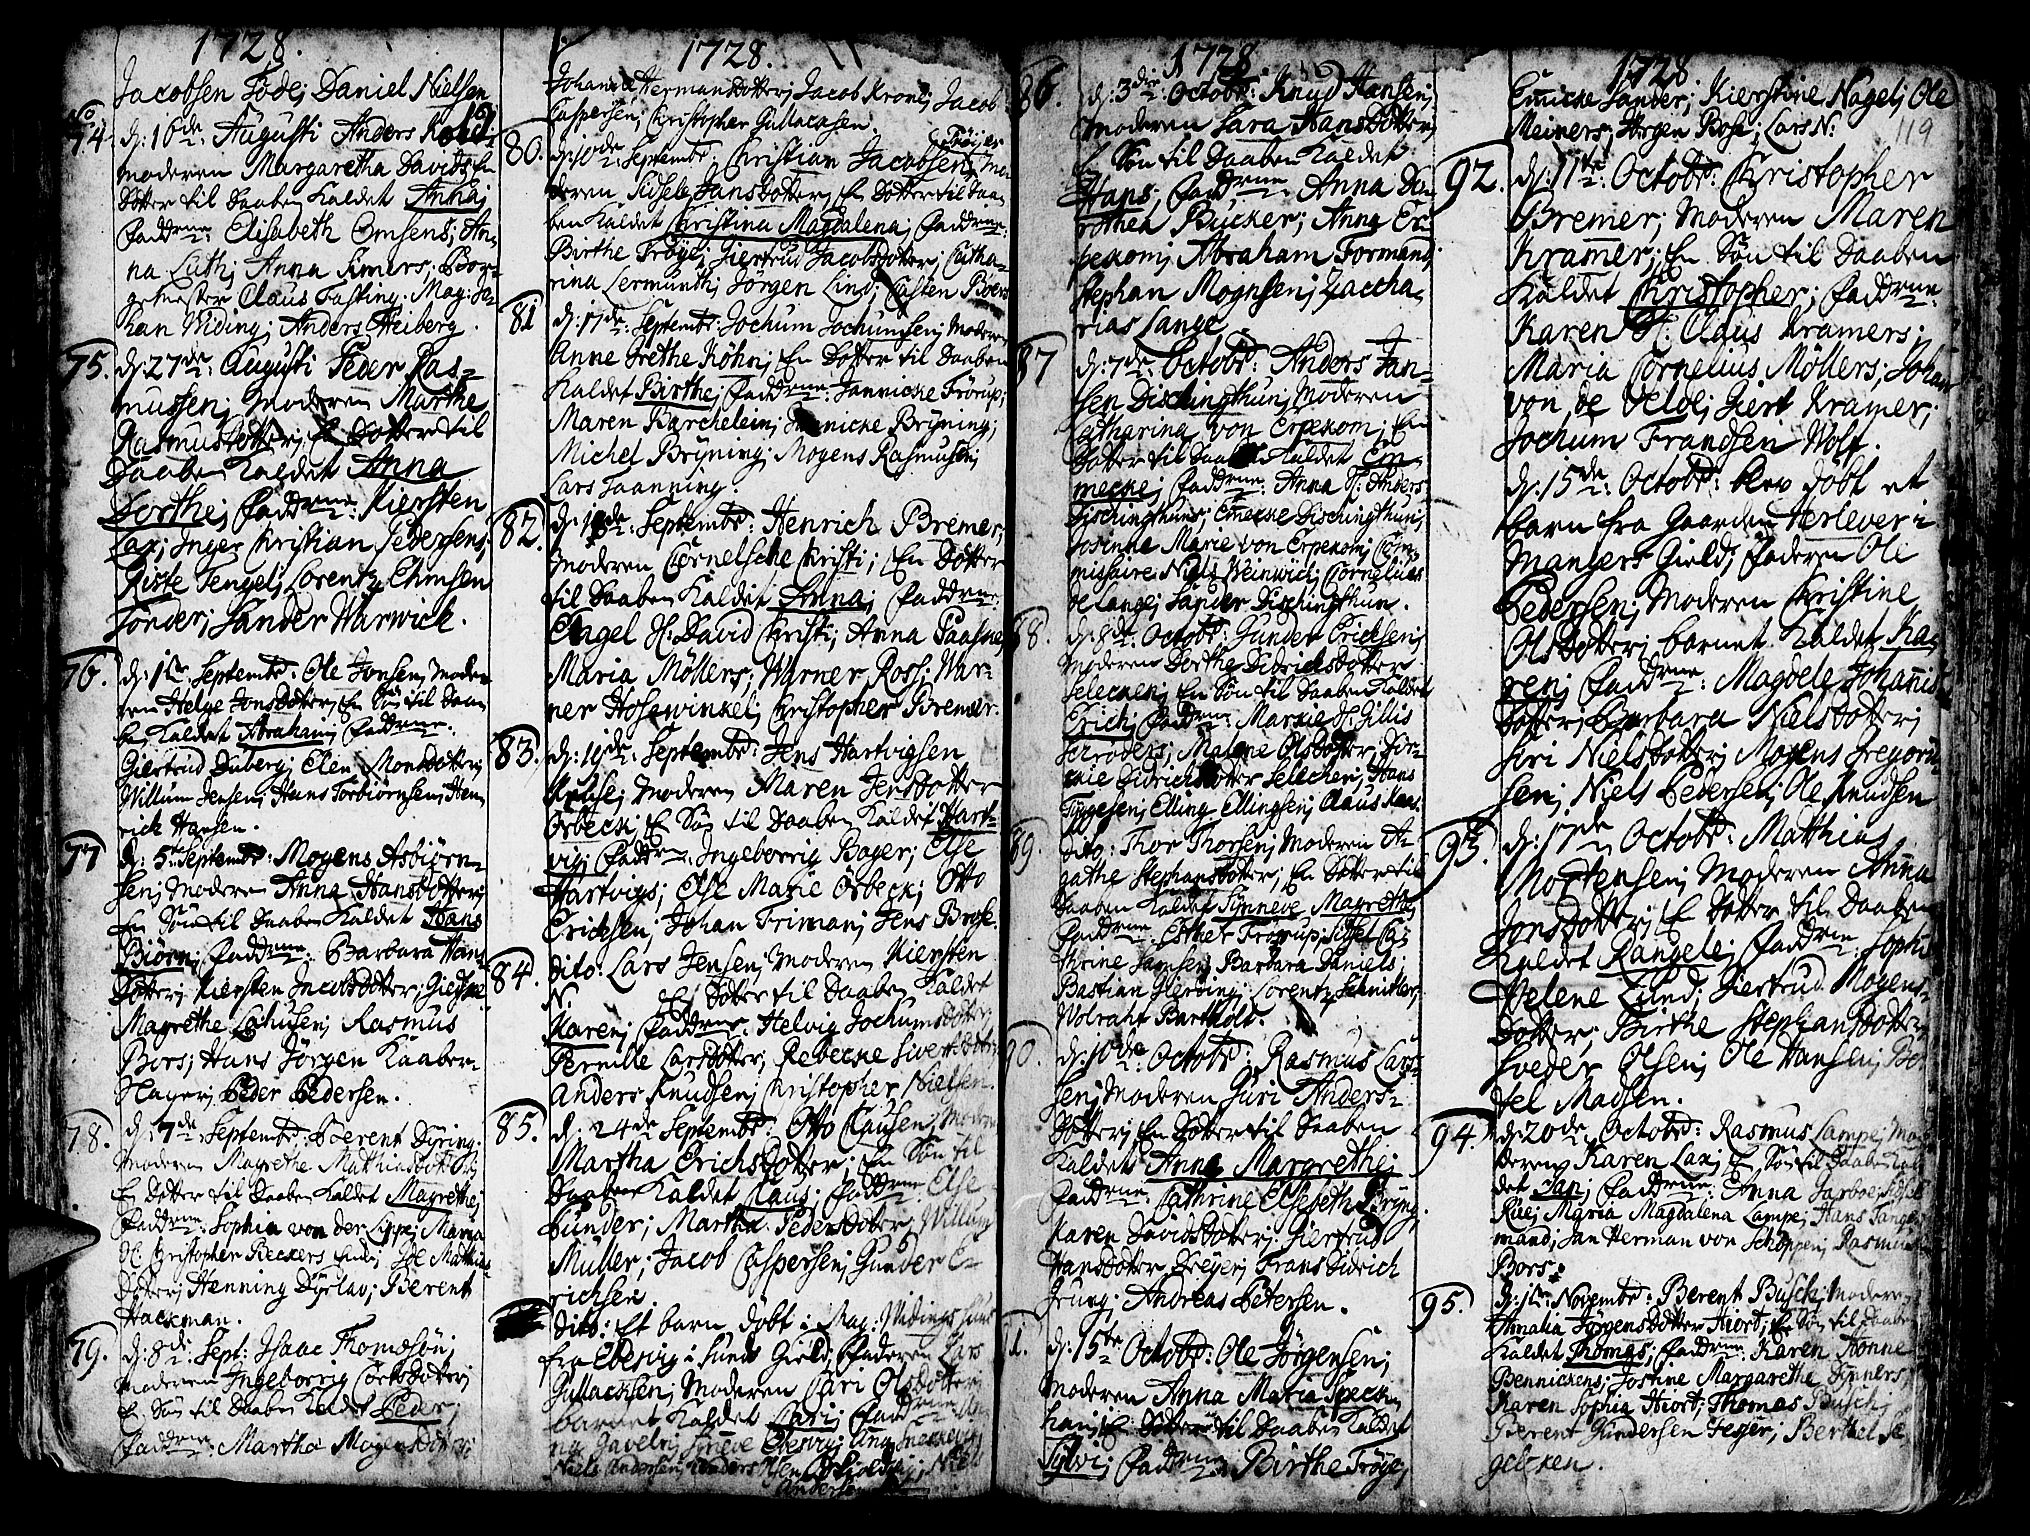 1728.
Jacobsen Föde; Daniel Nielsen
No 74. d: 16de: Augusti Anders
moderen Margaretha Davids; En
Dotter til Daaben Kaldet Anna;
Faddrne: Elisabeth Omsens; An-
na Luth; Anna Simers; Bor-
gemester Claus Fasting; Mag: Jo-
han Widing; Anders Heiberg.
75. d: 27de: Augusti Peder Ras-
mussen; Moderen Marthe
Rasmusdotter; En Dotter til
Daaben Kaldet Anna
Dorthe; Faddrne: Kiersten
Lax; Inger Christian Pedersens;
Kiste Fengel; Lorentz Chimsen
Sonder; Sander Warwick.
76. d: 1te: Septembr: Ole Jonsen; Moder-
ren Helge Jonsdotter; En Sön til Daa-
ben Kaldet Abraham; Faddrne:
Giertrud Duberg; Elen Monsdotter;
Willum Jensen; Hans Torbiörnsen; Hen-
rich Hansen.
77 d: 5te Septembr: Mogens Asbiörn-
sen; Moderen Anna Hansdotter;
En Sön til Daaben Kaldet Hans
Biörn; Faddrne: Barbara Hans-
Dotter; Kiersten Jacobsdotter; Giedsche
Magrethe Lohusen; Rasmus
Bors; Hans Jörgen Kaaben-
Hagen; Peder Pedersen.
78. d: 7de: Septembr: Berent Dyring;
Moderen Magrethe Mathiasdotter
En Dotter til Daaben Kaldet Magrethe;
Faddrne: Sophia von der Lippe; Maria
Sl: Christopher Reckers; Ide Mathias-
Dotter; Henning Dyrlav; Berent
Hackman.
79. d: 8de: Sept: Isaac Thomesön;
moderen Ingeborrig Cortsdotter;
En Sön til Daaben Kaldet Peder;
Faddrne: Martha Mogensdotter;
1728.
Johanna Hermansdotter; Jacob Krone; Jacob
Caspersen; Christopher Gullacksen.
80. d: 10de: Septembr: Christian Jacobsen Tröjer; Mo-
deren Sidsele Jansdotter; En Dotter til Daa-
ben Kaldet Christina Magdalena; Faddrne:
Birthe Tröye; Giertrud Jacobsdotter; Catha-
rina Lermunth; Jörgen Lind; Casten Pivers
81 d: 17de: Septembr: Jochum Jochumsen; Moderen
Anne Grethe Köhn; En Dotter til Daaben
Kaldet Birthe; Faddrne: Jannicke Frörup;
Maren Barchelein; Jannicke Bryning;
Michel Bryning; Mogens Rasmusen;
Lars Taanning.
82. d: 18de: Septembr: Henrich Bremer;
Moderen Cornelsche Christi; En Dotter
til Daaben Kaldet Anna; Faddrne:
Engel Sl: David Christi; Anna Paasche;
Maria Möllers; Warner Ross; War-
ner Hosewinkel; Christopher Bremer.
83. d: 19de: Septembr: Jens Hartvigsen
Kruse; Moderen Maren Jensdotter
Orbeck; En Sön til Daaben Kaldet Hart-
vig; Faddrne: Ingeborrig Bager; Else
Hartvigs; Else Marie Orbeck; Otto
Ericksen; Johan Friman; Jens Brose.
84. Dito: Lars Jensen; Moderen Kiersten
N: En Dotter til Daaben Kaldet
Karen; Faddrne: Helvig Jochumsdotter;
Pernille Larsdotter; Rebecke Sivertsdotter
Anders Knudsen; Christopher Nielsen.
85. d: 24de Septembr: Otto Clausen; Moderen
Martha Erichsdotter; En Sön til
Daaben Kaldet Claus; Faddrne Else
Sunder; Martha Pedersdotter; Willum
Müller; Jacob Caspersen; Gunder E-
richsen
Dito: Et barn döbt i Mag: Widings Huus
fra Ebesvig i Sunds Gield; Faderen Lars
Gullacksen; Moderen Kari Olsdotter;
barnet Kaldet Kari; Faddrne
Niels Andersen; Anders Niels
Andersen
1728.
86. d: 3de: Octobr: Knud Hansen;
Moderen Sara Hansdotter;
En Sön til Daaben Kaldet
Hans; Faddrne: Anna Do-
rothea Bucker; Anna Er-
pekom; Abraham Formand;
Stephan Mognsen; Zaccha-
rias Lange.
87 d: 7de: Octobr: Anders Jan-
sen Dischingthun; Moderen
Catharina von Erpekom; En
Dotter til Daaben Kaldet Em-
mecke; Faddrne: Anna Sl: Anders
Dischingthuns; Emecke Dischingthun;
Josinne Marie von Erpekom; Com-
missaire Niels Weinwich; Cornelius
de Lange; Sander Dischingthun.
88. d: 8de: Octobr: Gunder Ericksen;
Moderen Dorthe Didrichsdotter
Selecken; En Sön til Daaben Kaldet
Erich; Faddrne Marie Sl: Gillis
Schröders; Malene Olsdotter; Dor-
thie Didrichsdotter Selecken; Hans
Tyggesen; Elling Ellingsen; Claus Hans.
89. Dito: Thor Thorsen; Moderen A-
gathe Stephansdotter; En Dotter til
Daaben Kaldet Synneve Magrethe;
Faddrne: Esther Frörup; Sidsel Ca-
thrine Samsen; Barbara Daniels;
Bastian Gierding; Lorentz Schnitler;
Wolraht Barthold.
90. d: 10de: Octobr: Rasmus Lars-
sen; Moderen Guri Anders-
Dotter; En Dotter til Daaben
Kaldet Anna Margrethe;
Faddrne: Cathrine Elsebeth Bryng.
Karen Davidsdotter; Giertrud
Hansdotter Dreyer; Frans Didrich
Grung; Andreas Petersen.
91. d: 15te Octobr: Ole Jörgensen;
Moderen Anna Maria Speck-
han; En Dotter til Daaben Kaldet
Sylvi; Faddrne: Birthe Tröye;
1728.
119
Emicke Sander; Kierstine Nagel; Ole
Meiners; Jörgen Rose; Lars N:
92. d: 11te: Octobr: Christopher
Bremer; Moderen Maren
Kramer; En Sön til Daaben
Kaldet Christopher; Faddrne:
Karen Sl: Claus Kramers;
Maria Cornelius Möllers; Johan
von de Velde; Giert Kramer;
Jochum Frandsen Wolf.
d: 15de: Octobr: blev döbt et
barn fra Gaarden Herlever i
Mangers Gield; Faderen Ole
Pedersen; Moderen Christine
Olsdotter; barnet Kaldet Ka-
ren; Faddrne: Magdele Johannis-
Dotter; Barbara Nielsdotter;
Siri Nielsdotter; Mogens Gregorii-
sen; Niels Pedersen; Ole Knudsen
93. d: 17de Octobr: Matthias
Mortensen; Moderen Anna
Jonsdotter; En Dotter til Daaben
Kaldet Rangele; Faddrne: Sophia
Helene Lund; Giertrud Mogens-
Dotter; Birthe Stephansdotter;
Sveder Olsen; Ole Hansen; Ber-
tel Madsen.
94. d: 20de, Octobr: Rasmus Lampe; Mo-
deren Karen Lax; En Sön til Daaben Kal-
det Jan; Faddrne: Anna Jarboe; Sidsel
Rüe; Maria Magdalena Lampe; Hans Tange-
mand; Jan Herman von Schöppen; Rasmus
Bors.
95. d: 1te: Novembr: Berent Busch; Moderen
Amalia Jörgensdotter Hiort; En Sön til Daaben
Kaldet Thomas; Faddrne: Karen Honne
Bennickens; Jostine Margarethe Tynners;
Karen Sophia Hiort; Thomas Busch;
Berent Gundersen Jeger; Berthel Se-
gelcken.